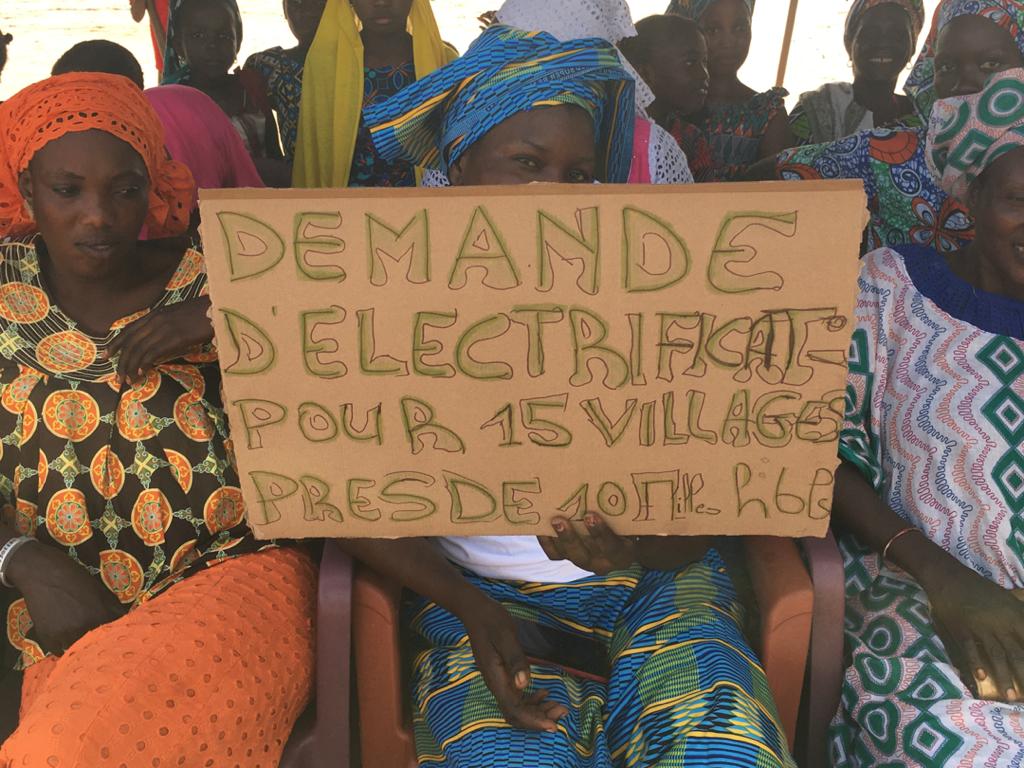 DEMANDE
D'ELECTRIFICAT°
POUR 15 VILLAGES
PRES DE 10 Mille